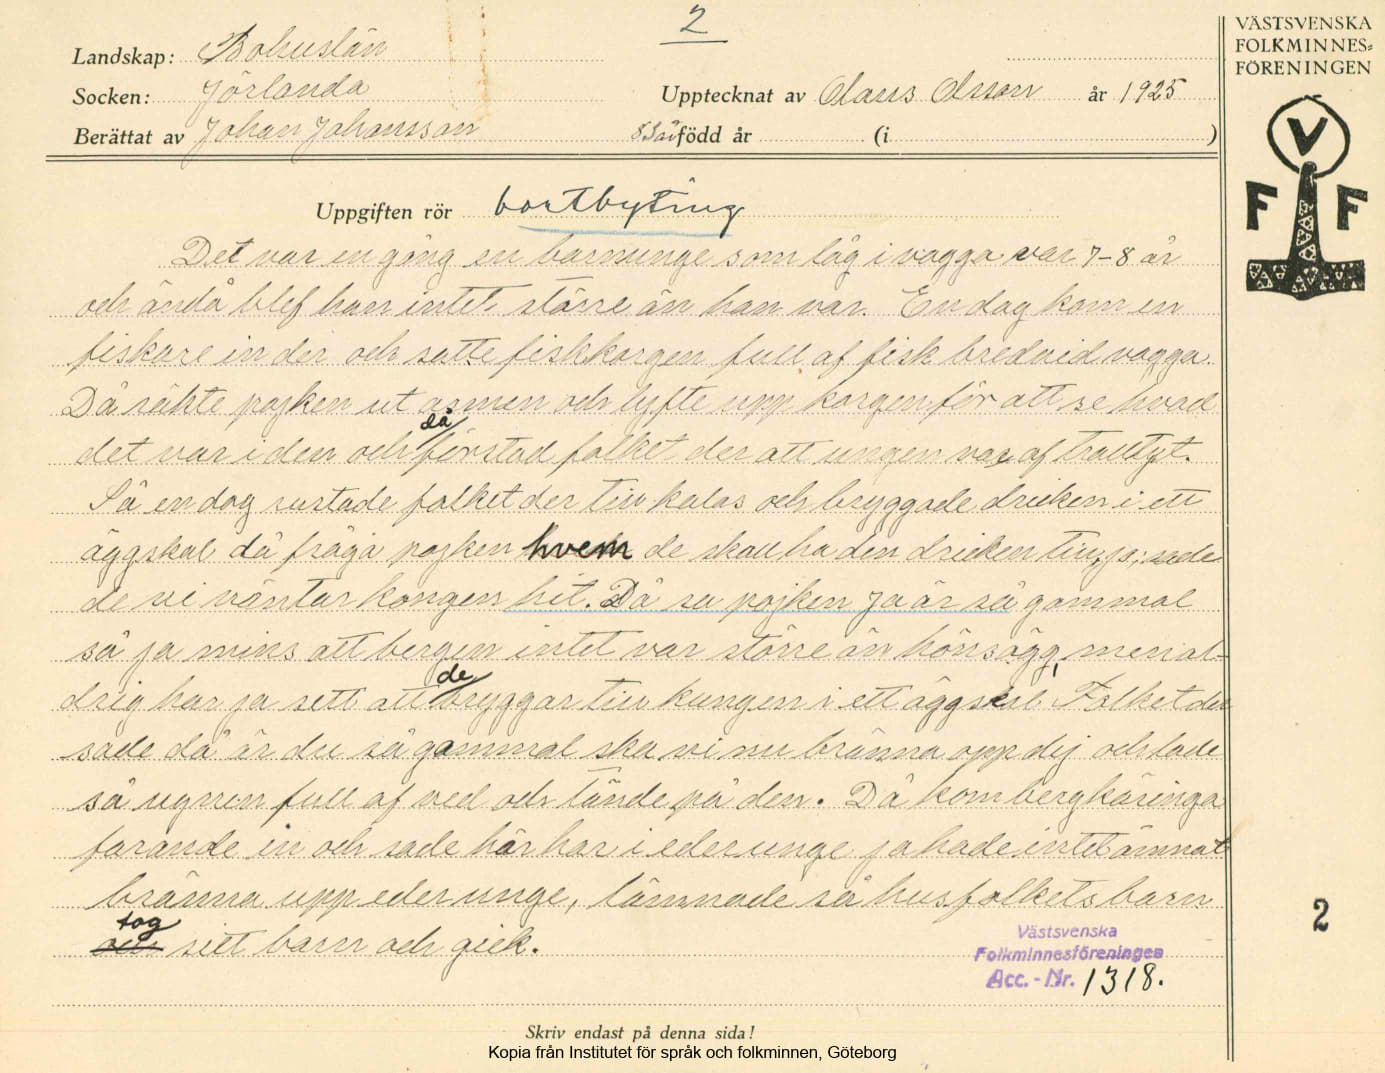 2
VÄSTSVENSKA
FOLKMINNES=
FÖRENINGEN
V
F F
Landskap: Bohuslän
Socken: Jörlanda
Upptecknat av Olaus Olsson år 1925
Berättat av Johan Johansson 83 år född år (i )
Uppgiften rör bortbyting
Det var en gång en barnunge som låg i vagga var 7-8 år
och ändå blef han intet större än han var. En dag kom en
fiskare in der och satte fiskkorgen full af fisk bredvid vagga.
Då räkte pojken ut armen och lyfte upp korgen för att se hvad
det var i den och då förstod folket der att ungen var af trolltyt.
Så en dag rustade folket der till kalas och bryggade dricken i ett
äggskal då fråga pojken hvem de skall ha den dricken till, ja, sade
de vi väntar kongen hit. Då sa pojken Ja är så gammal
så ja mins att bergen intet var större än hönsägg, men al-
drig har ja sett att de bryggar till kungen i ett äggskal. Folket der
sade då är du så gammal ska vi nu bränna opp dig och lade
så ugnen full af ved och tände på den. Då kom bergkäringa
farande in och sade här har i eder unge ja hade intet ämnat
bränna upp eder unge, lämnade så husfolkets barn
tog sitt barn och gick.
2
Västsvenska
Folkminnesföreningen
Acc. - Nr. 1318.
Skriv endast på denna sida!
Kopia från Institutet för språk och folkminnen, Göteborg